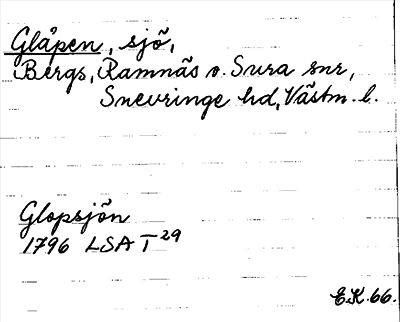 Glåpen, sjö,
Bergs, Ramnäs o. Sura snr,
Snevringe hd, Västm. l.
Glopsjön
1796 LSA T29
E.K. 66.